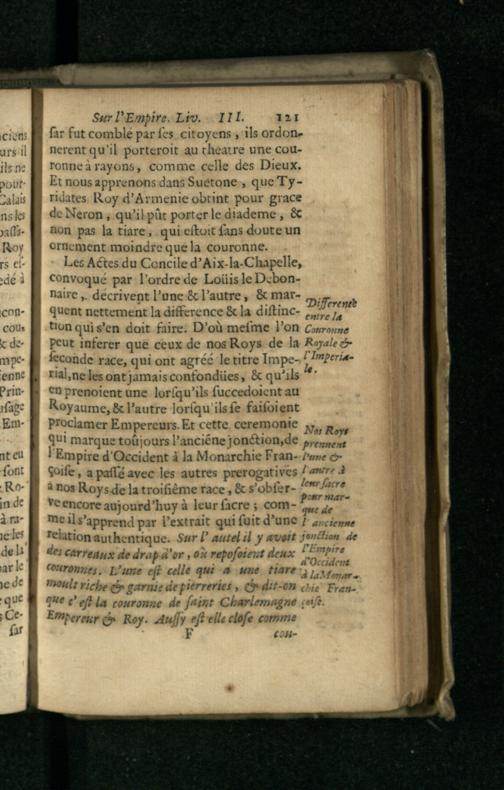 Sur l'Empire. Liv. III. 121
sar fut comblé par ses citoyens, ils ordon-
nerent qu'il porteroit au theatre une cou-
ronne à rayons, comme celle des Dieux.
Et nous apprenons dans Suetone, que Ty-
ridates Roy d'Armenie obtint pour grace
de Neron, qu'il pût porter le diademe, &
non pas la tiare, qui estoit sans doute un
ornement moindre que la couronne.
Les Actes du Concile d'Aix-la-Chapelle,
convoqué par l'ordre de Loüis le Debon-
naire, décrivent l'une & l'autre, & mar-
quent nettement la difference & la distinc-
tion qui s'en doit faire. D'où mesme l'on
peut inferer que ceux de nos Roys de la
seconde race, qui ont agréé le titre Impe-
rial, ne les ont jamais confondües, & qu'ils
en prenoient une lorsqu'ils succedoient au
Royaume, & l'autre lorsqu'ils se faisoient
proclamer Empereurs. Et cette ceremonie
qui marque toûjours l'anciéne jonction, de
l'Empire d'Occident à la Monarchie Fran-
çoise, a passé avec les autres prerogatives
à nos Roys de la troisiéme race, & s'obser-
ve encore aujourd'huy à leur sacre; com-
me il s'apprend par l'extrait qui suit d'une
relation authentique. Sur l'autel il y avoit
des carreaux de drap d'or, où reposoient deux
couronnes. L'une est celle qui a une tiare
moult riche & garnie de pierreries, & dit-on
que c'est la couronne de saint Charlemagne
Empereur & Roy. Aussy est elle close comme
F cou-
Difference
entre la
Couronne
Royale &
l'Imperia-
le.
Nos Roys
prennent
l'une &
l'autre à
leur sacre
pour mar-
que de
l'ancienne
jonction de
l'Empire
d'Occident
à la Monar-
chie Fran-
çoise.
ciens
urs il
ils ne
pour-
Calais
ns les
passa-
Roy
rs es-
edé à
con-
cou,
& de-
mpe-
ienne
Prin-
usage
Em-
nt eu
sont
Ro-
in de
à ra-
ne les
de la
par le
ne de
que
Ce-
sar